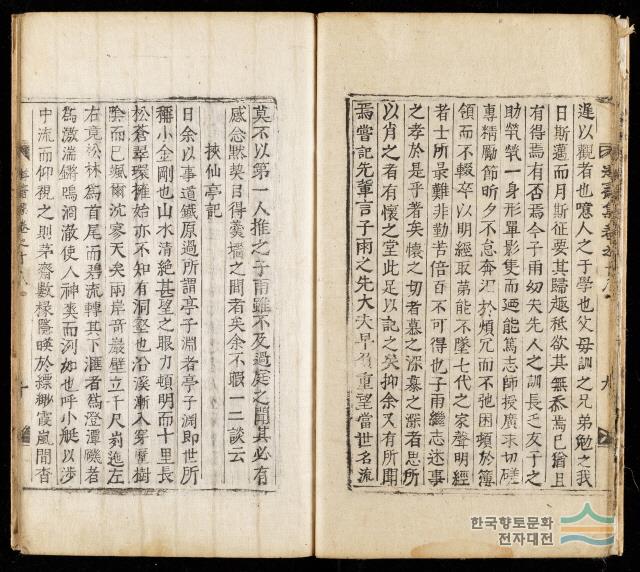 遲以觀者也噫人之于學也父母訓之兄弟勉之我
日斯邁而月斯征要其歸趣秪欲其無忝焉已猶且
有得焉有否焉今子雨幼失先人之訓長乏友于之
助煢煢一身形單影隻而廼能篤志師授廣求切磋
專精勵節昕夕不怠奔汩於煩冗而不弛困頓於簿
領而不輟卒以明經取第能不墜七代之家聲明經
者士所最難非勤苦倍百不可得也子雨繼志述事
之孝於是乎著矣懷之切者慕之深慕之深者思所
以肖之者有懷之堂此足以記之矣抑余又有所聞
焉嘗記先輩言子雨之先大夫早負重望當世名流
莫不以第一人推之子雨雖不及過庭之聞其必有
感念默契目得羹墻之間者矣余不暇一二談云
挾仙亭記
日余以事道鐵原過所謂亭子淵者亭子淵即世所
稱小金剛也山水清絶甚望之眼力頓明而十里長
松蒼翠環擁始亦不知有洞壑也沿溪漸入穿羣樹
陰而已颯爾沈寥天矣兩岸奇巖壁立千尺
右竟松林爲首尾而碧流轉其下滙者爲澄潭磯者
爲激湍鏘鳴洞澈使人神爽而冽如也呼小艇以涉
中流而仰視之則茅齋數椽隱暎於縹緲霞嵐間杳
한국향토문화
전자대전